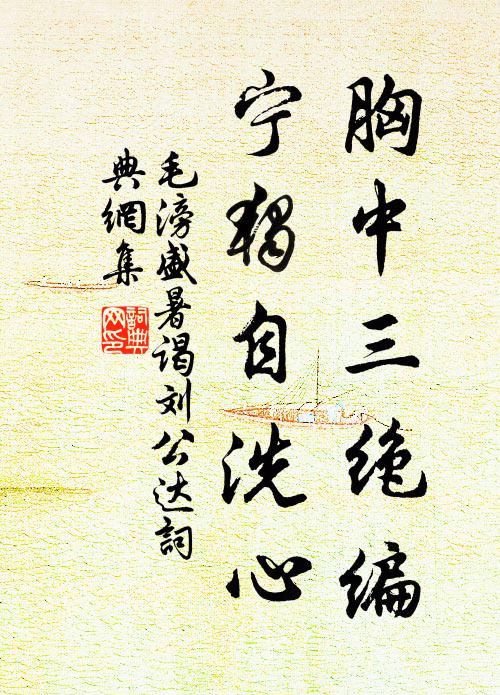 胸中三绝编
宁独自洗心
毛滂盛暑谒刘公达詞
典網集
詞典
网印